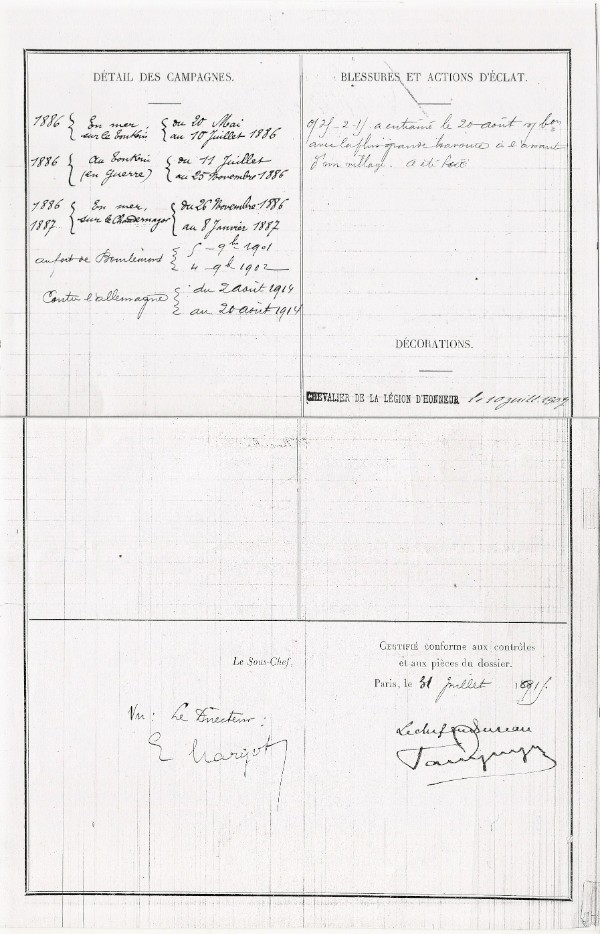 DÉTAIL DES CAMPAGNES.
1886 { En mer, sur le Tonkin { du 20 Mai
au 10 Juillet 1886
1886 { Au Tonkin (en guerre) { du 11 Juillet
au 25 Novembre 1886
1886
1887 { En mer, sur le { du 26 Novembre 1886
au 8 Janvier 1887
au fort de { 5 - 9bre 1901
4 - 9bre 1902
Contre l'allemagne { du 2 août 1914
au 20 août 1914
BLESSURES ET ACTIONS D'ÉCLAT.
a entrainé le 20 août
avec la plus grande bravoure à l'assaut
d'un village. a été
DÉCORATIONS.
CHEVALIER DE LA LÉGION D'HONNEUR le 10 juill.
Le Sous-Chef,
Vu : Le Directeur :
E Margot
CERTIFIÉ conforme aux contrôles
et aux pièces du dossier.
Paris, le 31 Juillet
Le chef du Bureau